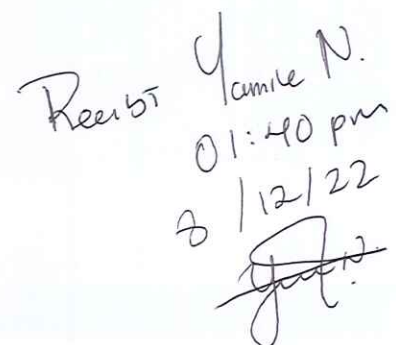 Recibí Yamile N.
01:40 pm
8/12/22